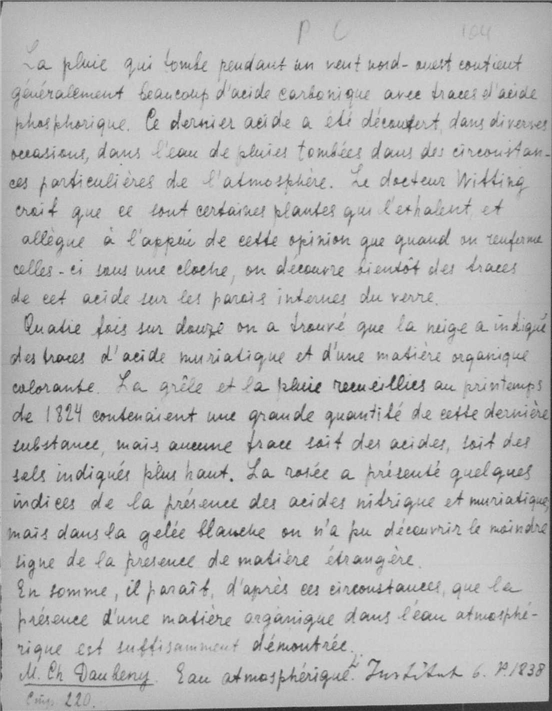 P C 104
La pluie qui tombe pendant un vent nord-ouest contient
généralement beaucoup d'acide carbonique avec traces d'acide
phosphorique. Ce dernier acide a été découvert, dans diverses
occasions, dans l'eau de pluies tombées dans des circonstan-
ces particulières de l'atmosphère. Le docteur Witting
croit que ce sont certaines plantes qui l'exhalent, et
allègue à l'appui de cette opinion que quand on renferme
celles-ci sous une cloche, on découvre bientôt des traces
de cet acide sur les parois internes du verre.
Quatre fois sur douze on a trouvé que la neige a indiqué
des traces d'acide muriatique et d'une matière organique
colorante. La grêle et la pluie recueillies au printemps
de 1824 contenaient une grande quantité de cette dernière
substance, mais aucune trace soit des acides, soit des
sels indiqués plus haut. La rosée a présenté quelques
indices de la présence des acides nitrique et muriatique,
mais dans la gelée blanche on n'a pu découvrir le moindre
signe de la presence de matière étrangère.
En somme, il paraît, d'après ces circonstances, que la
présence d'une matière organique dans l'eau atmosphé-
rique est suffisamment démontrée.
M. Ch Daubeny. Eau atmosphérique. Institut 6. P. 1838
220.